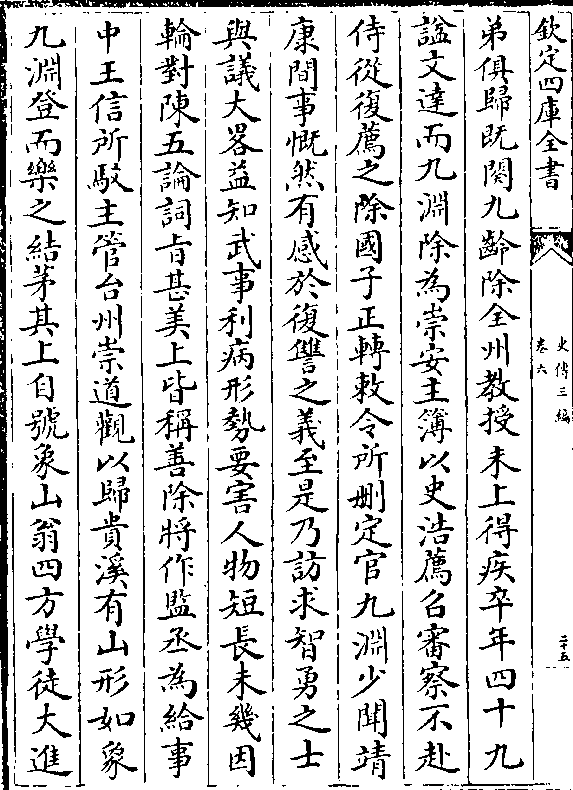 欽定四庫全書
史傳三編
卷六
二十五
弟俱歸既闋九齡除全州教授未上得疾卒年四十九
諡文達而九淵除為崇安主簿以史浩薦召審察不赴
侍從復薦之除國子正轉敕令所刪定官九淵少聞靖
康間事慨然有感於復讐之義至是乃訪求智勇之士
與議大畧益知武事利病形勢要害人物短長未幾因
輪對陳五論詞旨甚美上皆稱善除將作監丞為給事
中王信所駁主管台州崇道觀以歸貴溪有山形如象
九淵登而樂之結茅其上自號象山翁四方學徒大進